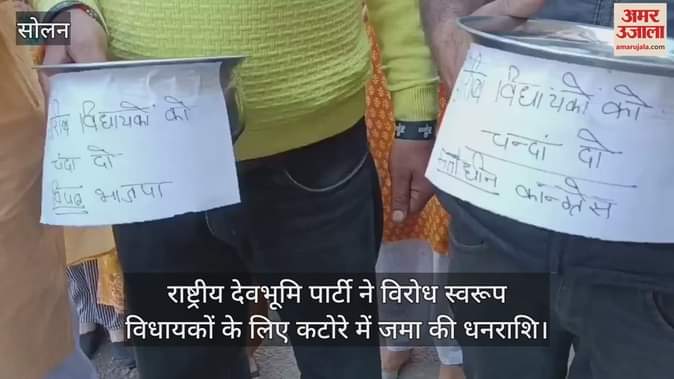 सोलन
अमर
उजाला
amarujala.com
विधायकों को
चंदा दो
विपक्ष भाजपा
विधायकों को
चन्दा दो
सत्ताधीन कान्ग्रेस
राष्ट्रीय देवभूमि पार्टी ने विरोध स्वरूप
विधायकों के लिए कटोरे में जमा की धनराशि।